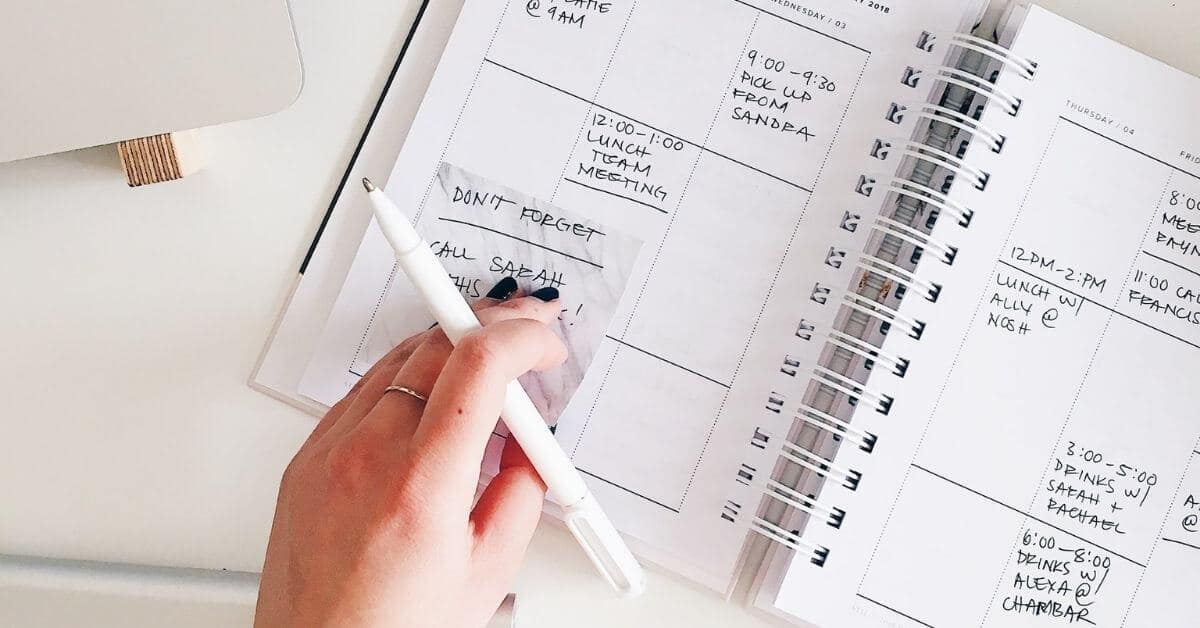 @ 9AM
2018
WEDNESDAY / 03
9:00-9:30
PICK UP
FROM
SANDRA
12:00-1:00
LUNCH
TEAM
MEETING
DON'T FORGET
CALL SARAH
THURSDAY / 04
12PM-2:PM
LUNCH W/
ALLY @
NOSH
3:00-5:00
DRINKS W/
SARAH +
RACHAEL
6:00-8:00
DRINKS W/
ALEXA @
CHAMBAR
11:00